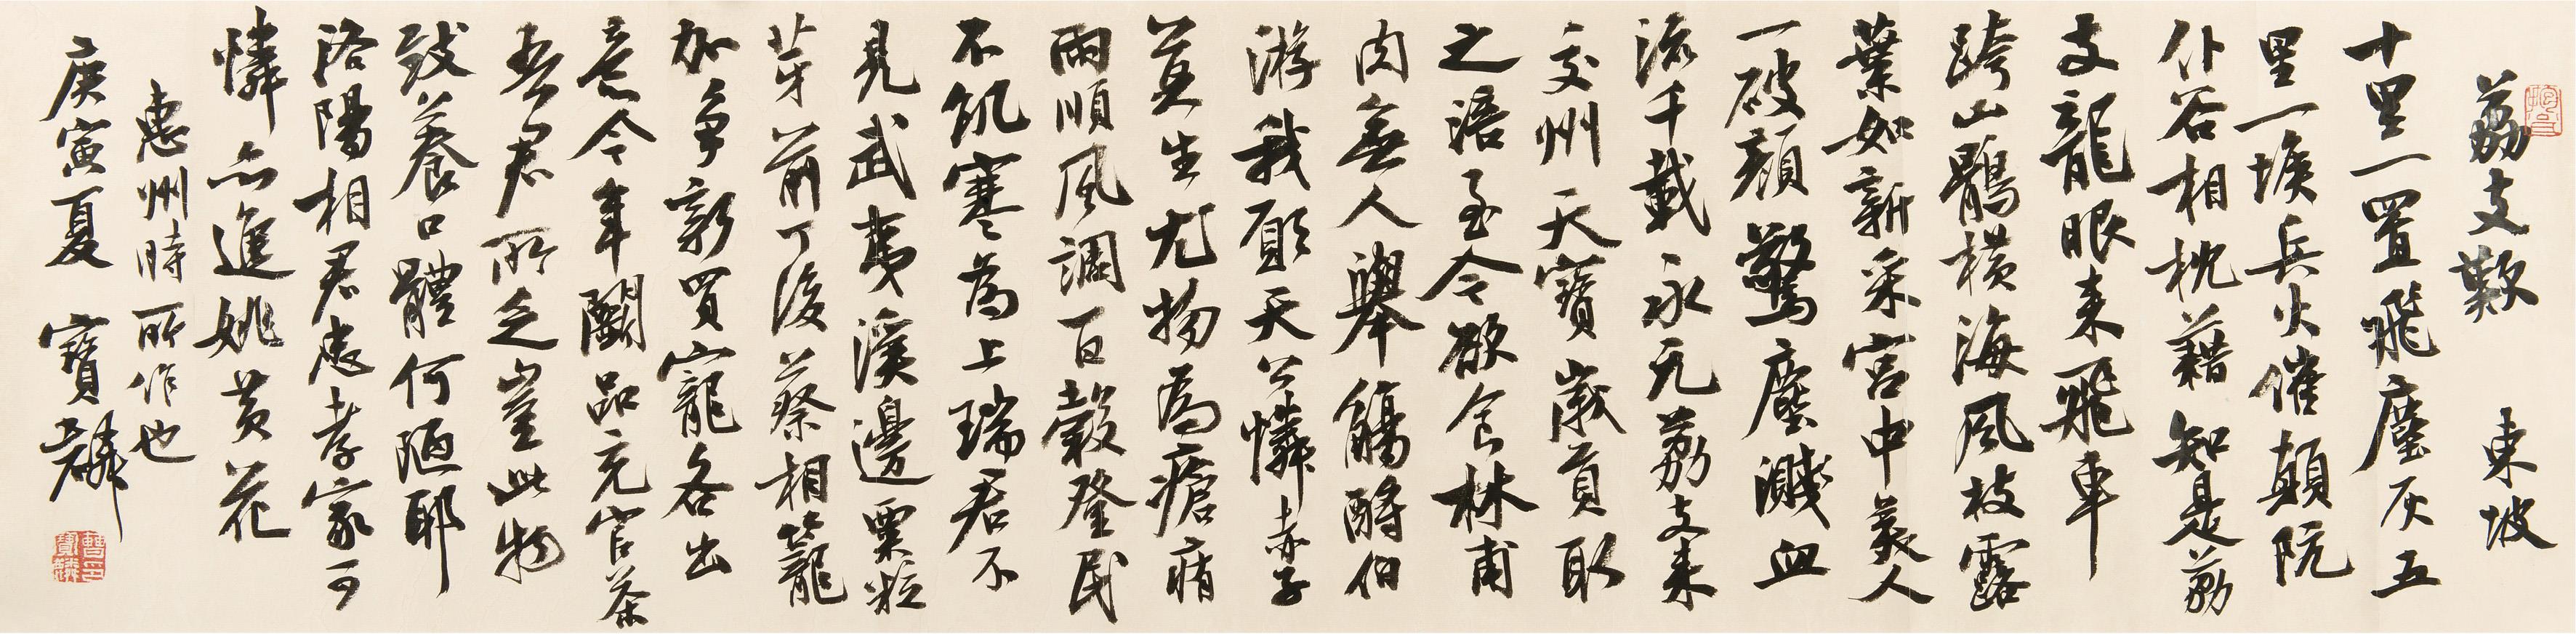 荔支歎 東坡
十里一置飛塵灰五
里一堠兵火催顛阬
仆谷相枕藉知是荔
支龍眼來飛車
跨山鶻橫海風枝露
葉如新采宮中美人
一破顏驚塵濺血
流千載永元荔支來
交州天寶歲貢取
之涪至今欲食林甫
肉無人舉觴酹伯
游我願天公憐赤子
莫生尤物為瘡痏
雨順風調百穀登民
不飢寒為上瑞君不
見武夷溪邊粟粒
芽前丁後蔡相籠
加爭新買寵各出
意今年鬪品充官茶
吾君所乏豈此物
致養口體何陋耶
洛陽相君忠孝家可
憐亦進姚黃花
惠州時所作也
庚寅夏 寶麟
曹寶麟印